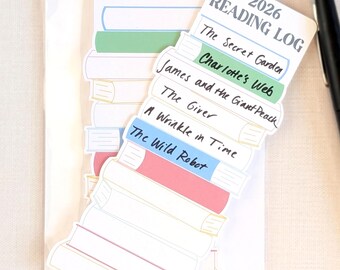 2026
READING LOG
The Secret Garden
Charlotte's Web
James and the Giant Peach
The Giver
A Wrinkle in Time
The Wild Robot